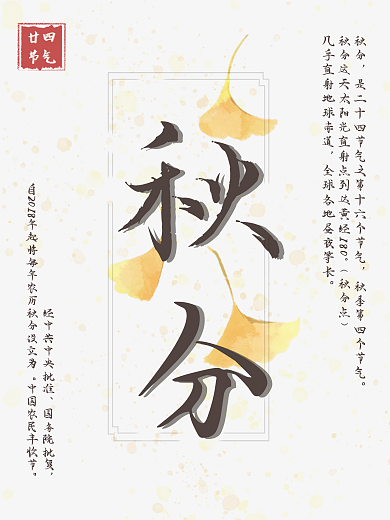 廿四
节气
秋分
秋分，是二十四节气之第十六个节气，秋季第四个节气。
秋分这天太阳光直射点到达黄经180°（秋分点）
几乎直射地球赤道，全球各地昼夜等长。
经中共中央批准、国务院批复，
自2018年起将每年农历秋分设立为。中国农民丰收节。